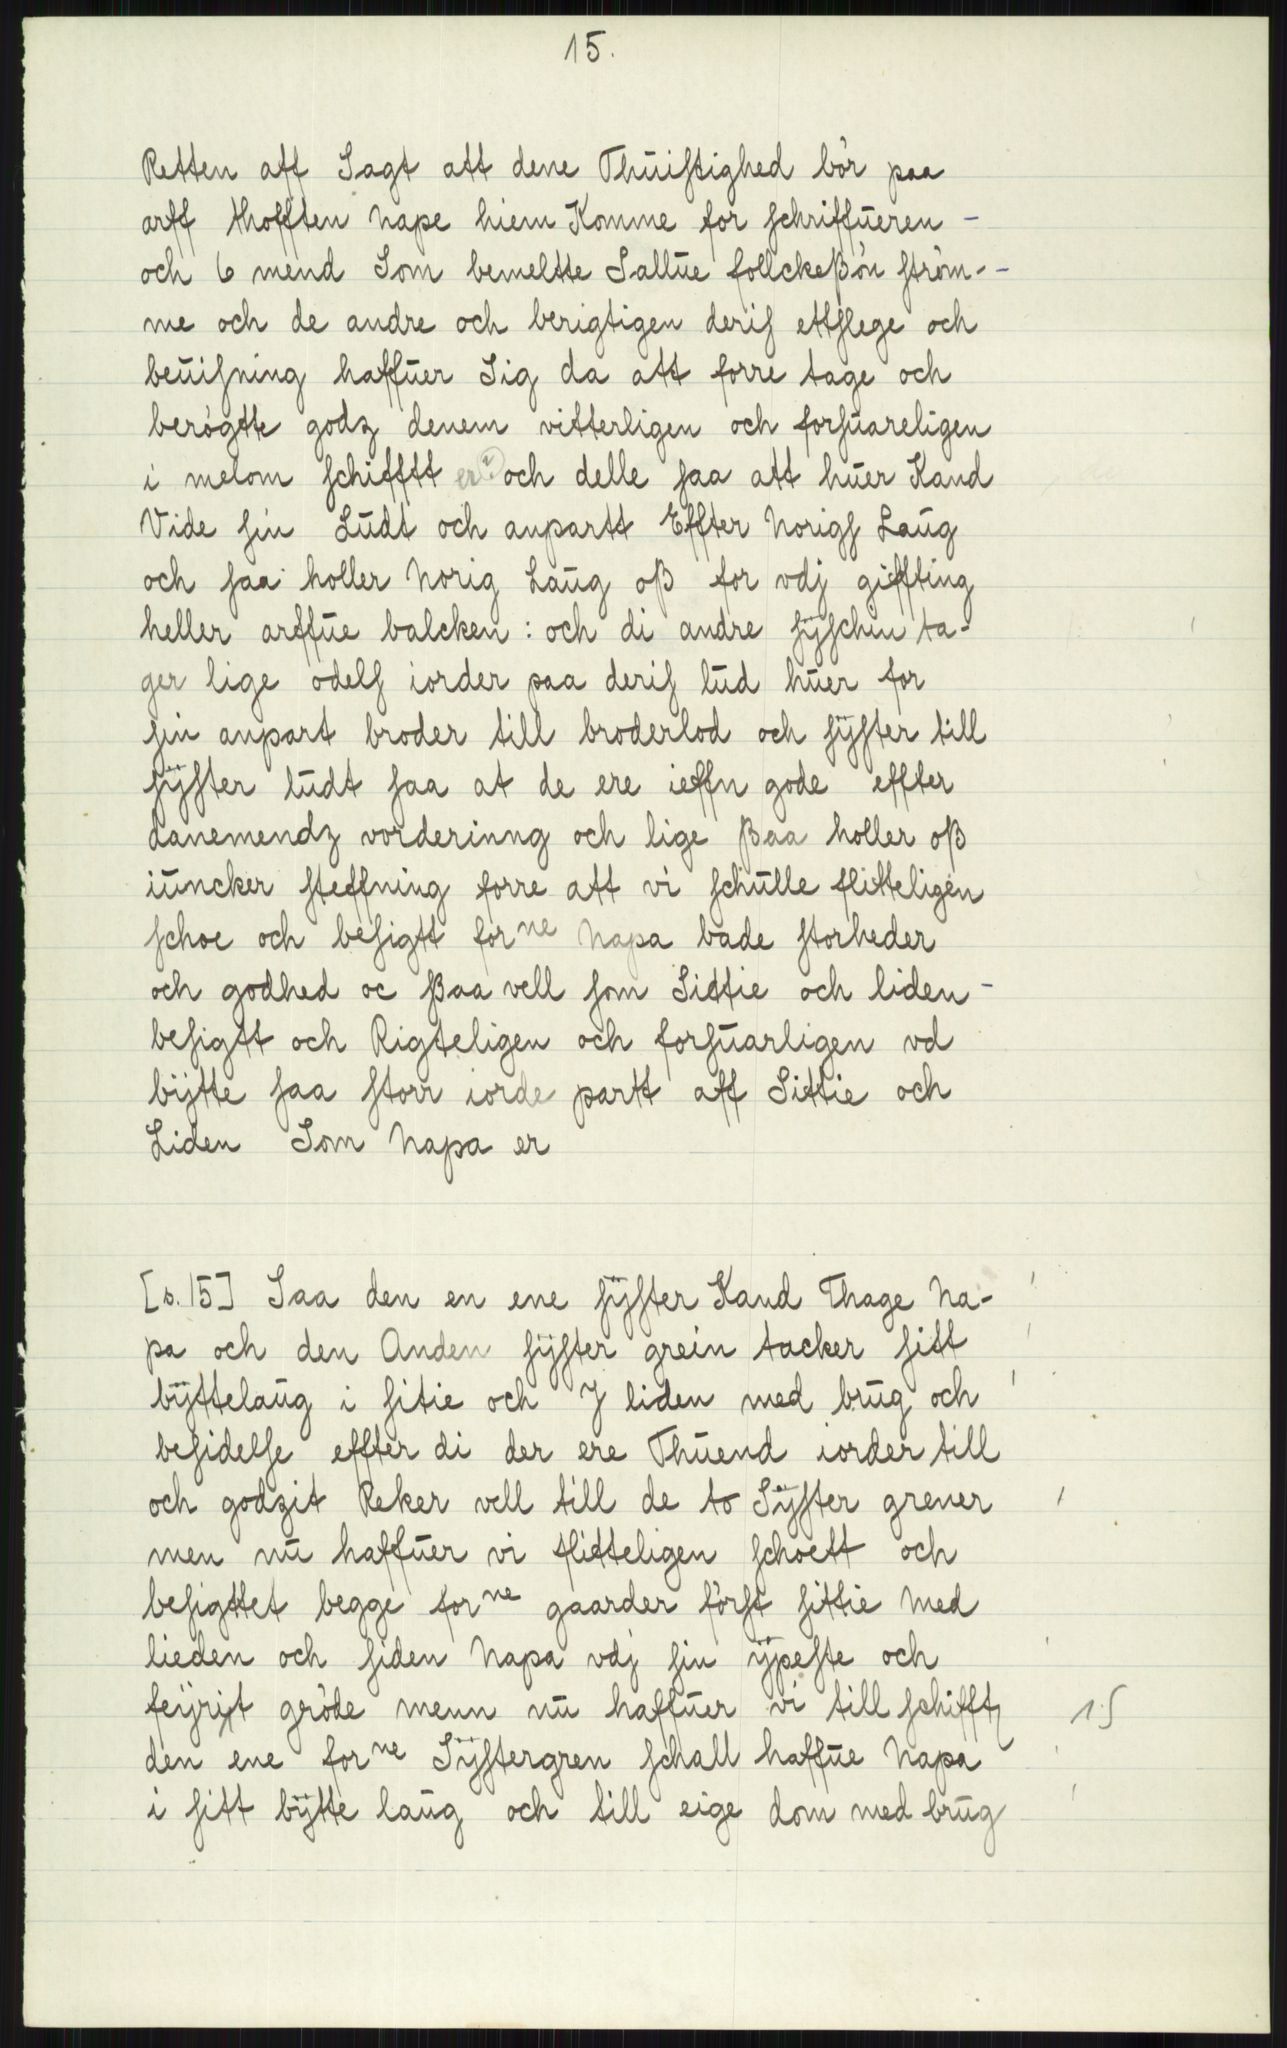 15.
Retten aff Sagt att dene Thuistighed bör paa
arff thofften Nape hiem Komme for schriffueren -
och 6 mend Som bemeltte Sallue follckeßön ström-
me och de andre och berigtigen deris ettslege och
beuisning haffuer Sig da att forre tage och
berögtte godz denem vitterligen och forsuareligen
i melom schifftt och delle saa att huer Kand
Vide sin Ludt och anpartt Effter Norigs Laug
och saa holler Norig Laug oß for vdj giffting
heller arffue balcken : och di andre sÿschin ta-
ger lige odels iorder paa deris lud huer for
sin anpart broder till broderlod och sÿster till
sÿster ludt saa at de ere ieffn gode effter
danemendz vorderinng och lige ßaa holler oß
iuncker steffning forre att vi schulle flitteligen
schoe och besigtt forne Napa bade storheder
och godhed oc ßaa vell som Sittie och liden -
besigtt och Rigteligen och forsuarligen vd
bÿtte saa storr iorde partt aff Sittie och
Liden Som Napa er
[s. 15] Saa den en ene sÿster Kand Thage Na-
pa och den Anden sÿster grein tacker sitt
bÿttelaug i sitie och J liden med brug och
besidelse effter di der ere Thuend iorder till
och godzit Reker vell till de to Sÿster grener
men nu haffuer vi flitteligen schoett och
besigttet begge forne gaarder först sittie Med
lieden och siden Napa vdj sin ÿpeste och
feÿrist gröde menn nu haffuer vi till schifft
15
den ene forne Sÿstergren schall haffue Napa
i sitt bÿtte laug och till eige dom med brug